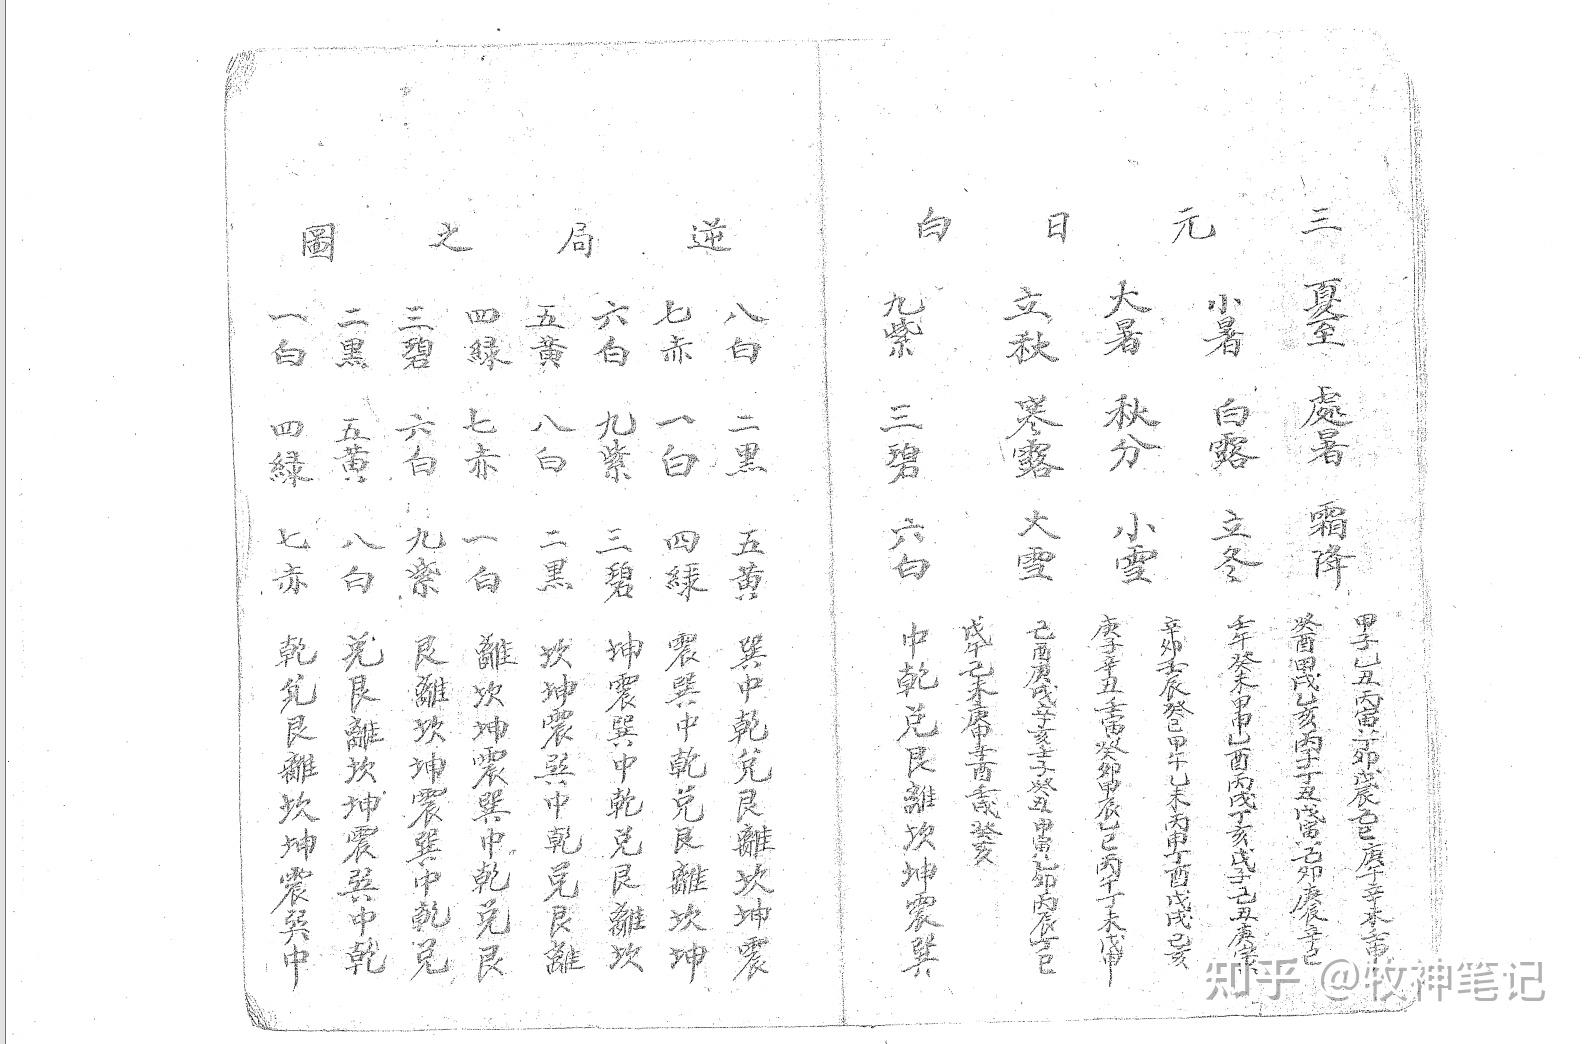 三元日白
夏至 處暑 霜降
小暑 白露 立冬
大暑 秋分 小雪
立秋 寒露 大雪
甲子乙丑丙寅丁卯戊辰己巳庚午辛未壬申
癸酉甲戌乙亥丙子丁丑戊寅己卯庚辰辛巳
壬午癸未甲申乙酉丙戌丁亥戊子己丑庚寅
辛卯壬辰癸巳甲午乙未丙申丁酉戊戌己亥
庚子辛丑壬寅癸卯甲辰乙巳丙午丁未戊申
己酉庚戌辛亥壬子癸丑甲寅乙卯丙辰丁巳
戊午己未庚申辛酉壬戌癸亥
九紫 三碧 六白 中乾兑艮離坎坤震巽
逆局之圖
八白 二黑 五黄 巽中乾兑艮離坎坤震
七赤 一白 四緑 震巽中乾兑艮離坎坤
六白 九紫 三碧 坤震巽中乾兑艮離坎
五黄 八白 二黑 坎坤震巽中乾兑艮離
四緑 七赤 一白 離坎坤震巽中乾兑艮
三碧 六白 九紫 艮離坎坤震巽中乾兑
二黑 五黄 八白 兑艮離坎坤震巽中乾
一白 四緑 七赤 乾兑艮離坎坤震巽中
知乎 @牧神笔记